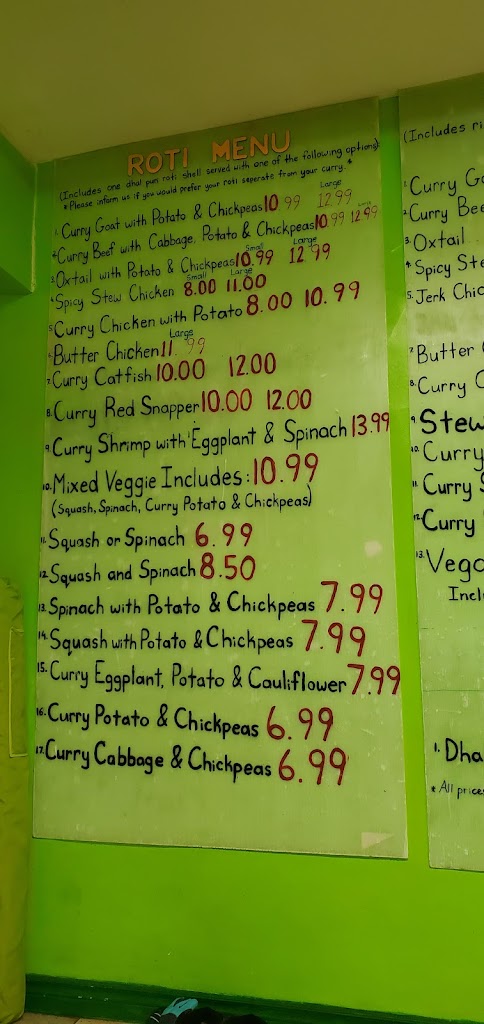 ROTI MENU
(Includes one dhal puri roti shell served with one of the following options):
*Please inform us if you would prefer your roti seperate from your curry.*
Large
1. Curry Goat with Potato & Chickpeas 10.99 12.99
2. Curry Beef with Cabbage, Potato & Chickpeas 10.99 12.99
Small Large
3. Oxtail with Potato & Chickpeas 10.99 12.99
Small Large
4. Spicy Stew Chicken 8.00 11.00
5. Curry Chicken with Potato 8.00 10.99
Large
6. Butter Chicken 11.99
7. Curry Catfish 10.00 12.00
8. Curry Red Snapper 10.00 12.00
9. Curry Shrimp with Eggplant & Spinach 13.99
10. Mixed Veggie Includes: 10.99
(Squash, Spinach, Curry Potato & Chickpeas)
11. Squash or Spinach 6.99
12. Squash and Spinach 8.50
13. Spinach with Potato & Chickpeas 7.99
14. Squash with Potato & Chickpeas 7.99
15. Curry Eggplant, Potato & Cauliflower 7.99
16. Curry Potato & Chickpeas 6.99
17. Curry Cabbage & Chickpeas 6.99
(Includes ri
1. Curry Go
2. Curry Bee
3. Oxtail
4. Spicy Ste
5. Jerk Chic
7. Butter
8. Curry C
9. Stew
10. Curry
11. Curry S
12. Curry
13. Vega
Incl
1. Dha
* All prices